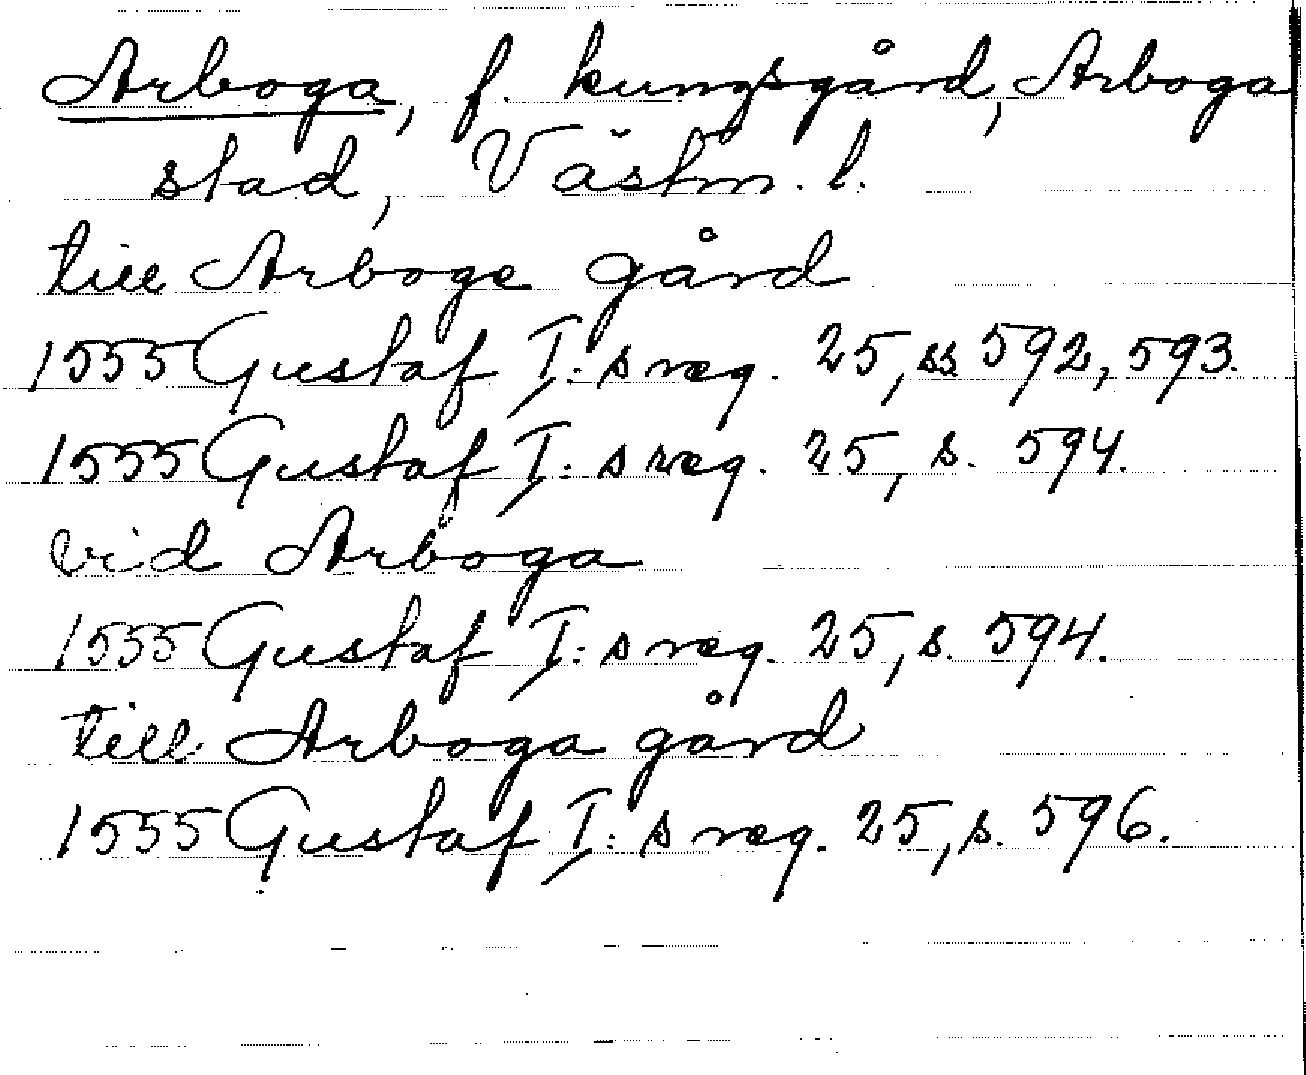 Arboga, f. kungsgård, Arboga
stad, Västm. l.
till Arboge gård
1555 Gustaf I:s reg. 25, ss 592, 593.
1555 Gustaf I:s reg. 25, s. 594.
vid Arboga
1555 Gustaf I:s reg. 25, s. 594.
till Arboga gård
1555 Gustaf I:s reg. 25, s. 596.